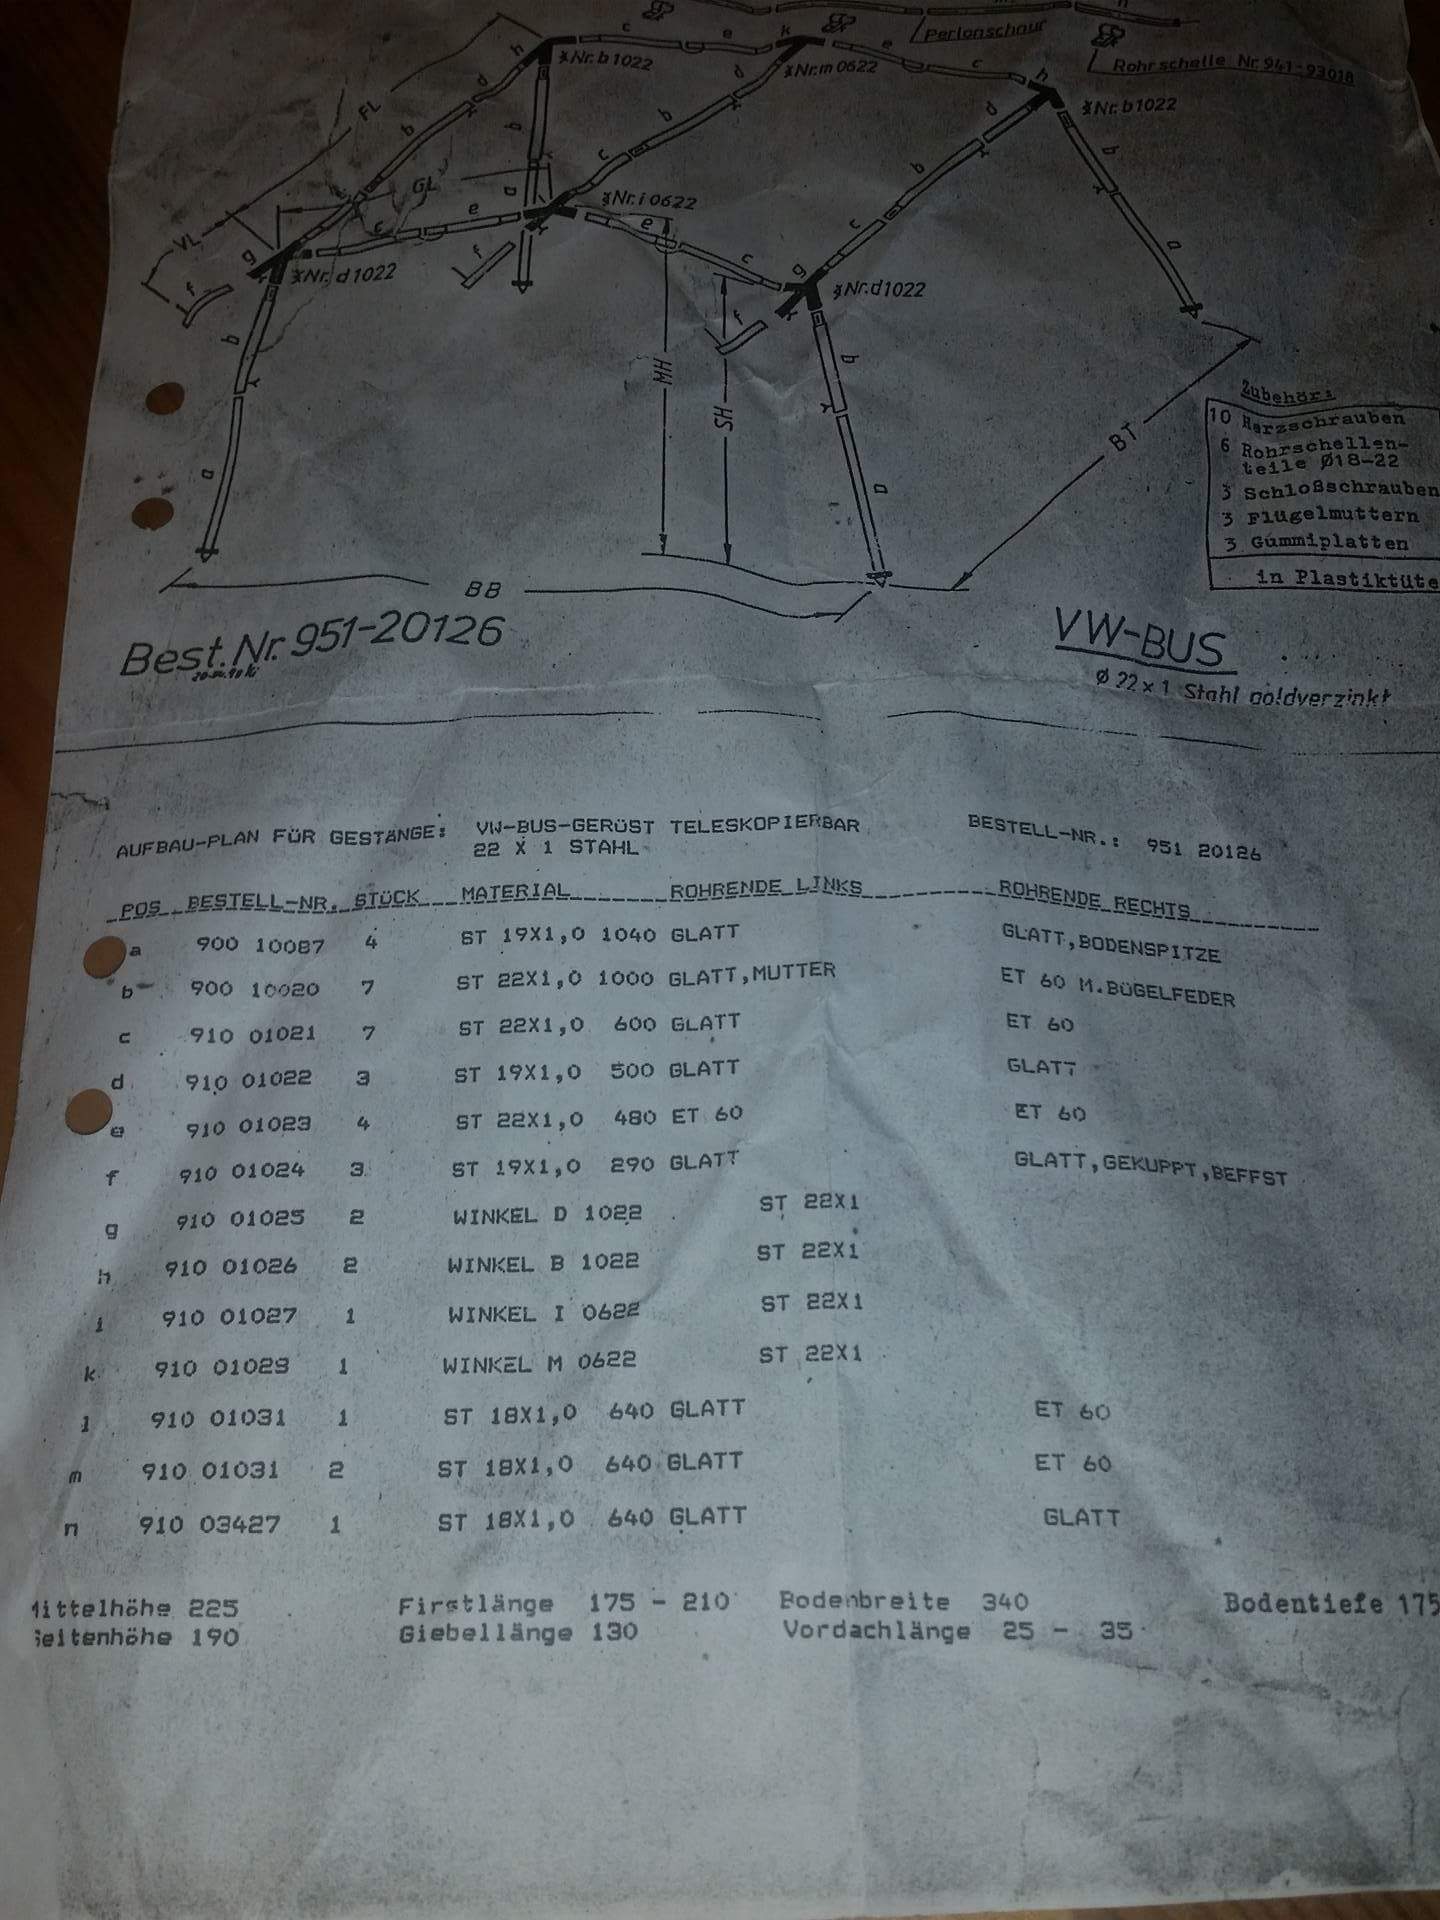 Perlonschnur
Rohrschelle Nr. 941-93018
h c e k e c h
Nr. b 1022
Nr. m 0622
Nr. b 1022
FL
d
b
GL
VL
g
f
c
e
Nr. i 0622
Nr. d 1022
Nr. d 1022
MH
SH
BT
BB
Zubehör:
10 Herzschrauben
6 Rohrschellen-
teile Ø18-22
3 Schloßschrauben
3 Flügelmuttern
3 Gummiplatten
in Plastiktüte
Best. Nr. 951-20126
VW-BUS
Ø 22 x 1 Stahl goldverzinkt
AUFBAU-PLAN FÜR GESTÄNGE: VW-BUS-GERÜST TELESKOPIERBAR BESTELL-NR.: 951 20126
22 X 1 STAHL
POS BESTELL-NR. STÜCK MATERIAL ROHRENDE LINKS ROHRENDE RECHTS
a 900 10087 4 ST 19X1,0 1040 GLATT GLATT,BODENSPITZE
b 900 10020 7 ST 22X1,0 1000 GLATT,MUTTER ET 60 M.BÜGELFEDER
c 910 01021 7 ST 22X1,0 600 GLATT ET 60
d 910 01022 3 ST 19X1,0 500 GLATT GLATT
e 910 01023 4 ST 22X1,0 480 ET 60 ET 60
f 910 01024 3 ST 19X1,0 290 GLATT GLATT,GEKUPPT,BEFFST
g 910 01025 2 WINKEL D 1022 ST 22X1
h 910 01026 2 WINKEL B 1022 ST 22X1
i 910 01027 1 WINKEL I 0622 ST 22X1
k 910 01029 1 WINKEL M 0622 ST 22X1
l 910 01031 1 ST 18X1,0 640 GLATT ET 60
m 910 01031 2 ST 18X1,0 640 GLATT ET 60
n 910 03427 1 ST 18X1,0 640 GLATT GLATT
Mittelhöhe 225 Firstlänge 175 - 210 Bodenbreite 340 Bodentiefe 175
Seitenhöhe 190 Giebellänge 130 Vordachlänge 25 - 35